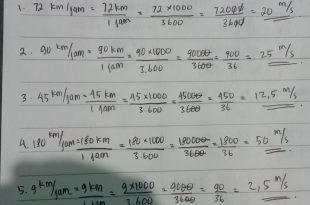 1. 72 km/jam = 72 km / 1 jam = 72 x 1000 / 3600 = 72000 / 3600 = 20 m/s
2. 90 km/jam = 90 km / 1 jam = 90 x 1000 / 3.600 = 90000 / 3600 = 900 / 36 = 25 m/s
3. 45 km/jam = 45 km / 1 jam = 45 x 1000 / 3.600 = 45000 / 3600 = 450 / 36 = 12,5 m/s
4. 180 km/jam = 180 km / 1 jam = 180 x 1000 / 3.600 = 180000 / 3600 = 1800 / 36 = 50 m/s
5. 9 km/jam = 9 km / 1 jam = 9 x 1000 / 3.600 = 9000 / 3600 = 90 / 36 = 2,5 m/s